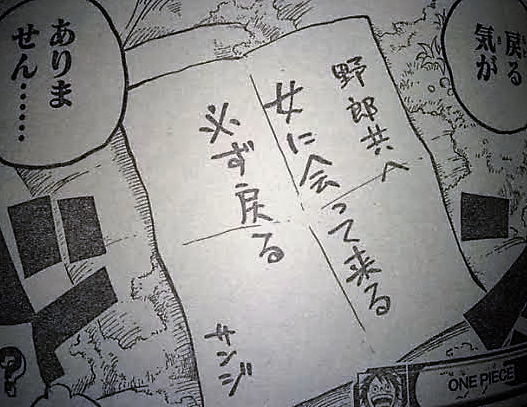 戻る
気が
野郎共へ
女に会って来る
必ず戻る
サンジ
ありま
せん……
?
ONE PIECE